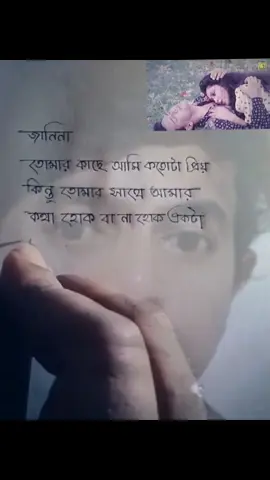 জানিনা
তোমার কাছে আমি কতোটা প্রিয়
কিন্তু তোমার সাথে আমার
কথা হোক বা না হোক একটা